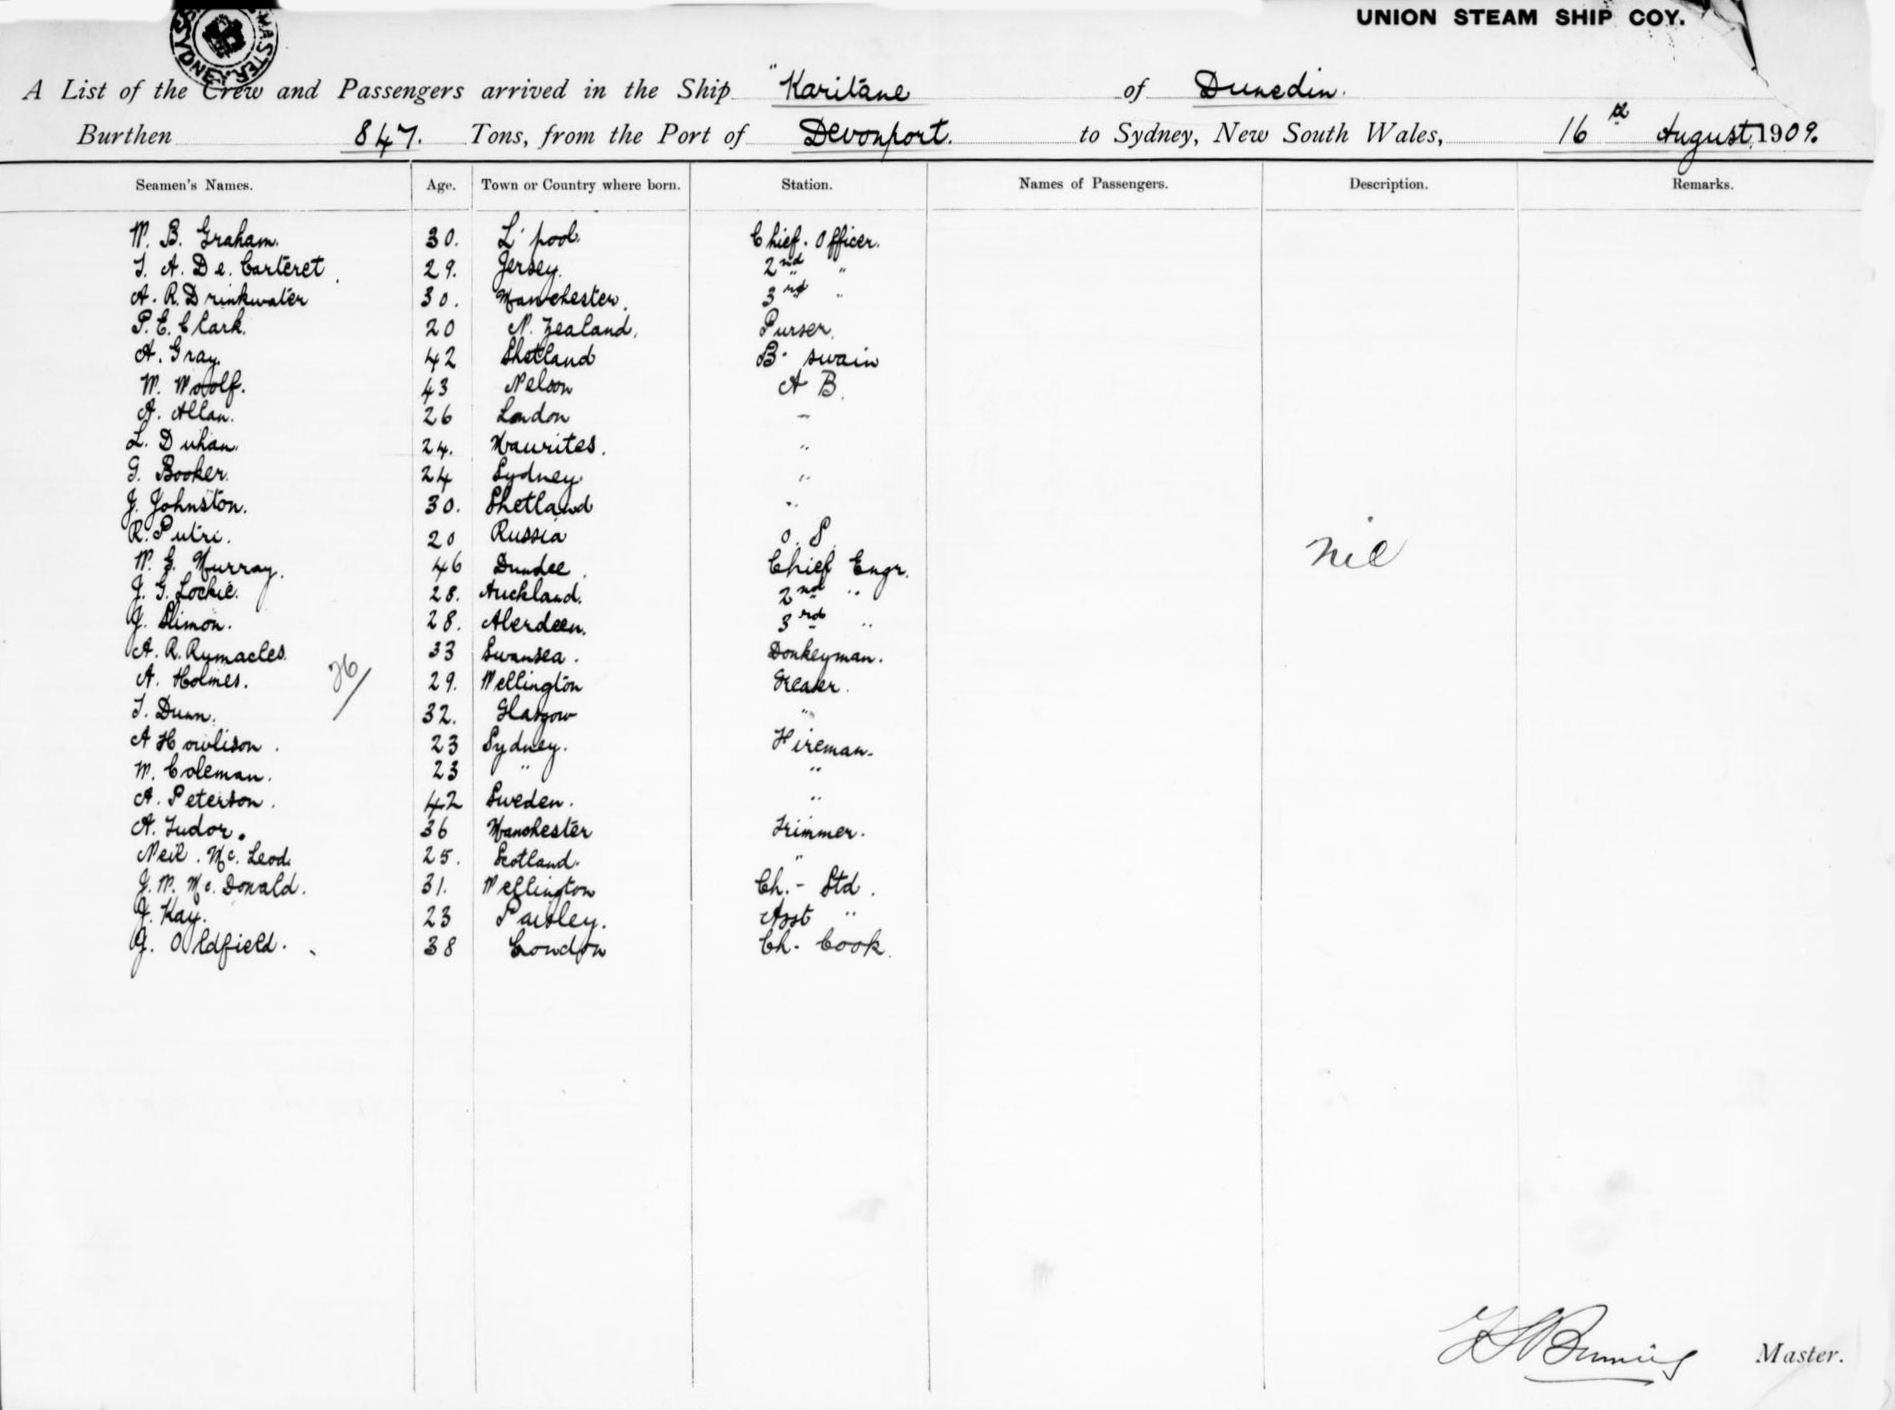 UNION STEAM SHIP COY.
MASTER SYDNEY
A List of the Crew and Passengers arrived in the Ship "Karitane of Dunedin.
Burthen 847. Tons, from the Port of Devonport. to Sydney, New South Wales, 16th August, 1909.
Seamen's Names. Age. Town or Country where born. Station. Names of Passengers. Description. Remarks.
W. B. Graham. 30. L'pool. Chief. Officer.
T. A. De. Carteret 29. Jersey. 2nd "
A. R. Drinkwater 30. Manchester. 3rd "
P. E. Clark. 20 N. Zealand, Purser.
A. Gray. 42 Shetland B. swain
W. Woolf. 43 Nelson A B.
A. Allan. 26 London "
L. Duhan. 24. Maurites. "
G. Booker. 24 Sydney. "
J. Johnston. 30. Shetland "
R. Putri. 20 Russia O. S.
nil
W. G. Murray. 46 Dundee. Chief Engr.
J. G. Lockie. 28. Auckland. 2nd "
J. Slimon. 28. Aberdeen. 3rd "
A. R. Rymacles. 33 Swansea. Donkeyman.
26/
A. Holmes. 29. Wellington Greaser.
T. Dunn. 32. Glasgow "
A Howlison. 23 Sydney. Fireman.
W. Coleman. 23 " "
A. Peterson. 42 Sweden. "
A. Tudor. 36 Manchester Trimmer.
Neil. Mc. Leod. 25. Scotland. "
J. W. Mc. Donald. 31. Wellington Ch. - Std.
J. Kay. 23 Paisley. Asst "
J. Oldfield. 38 London Ch. Cook.
Master.